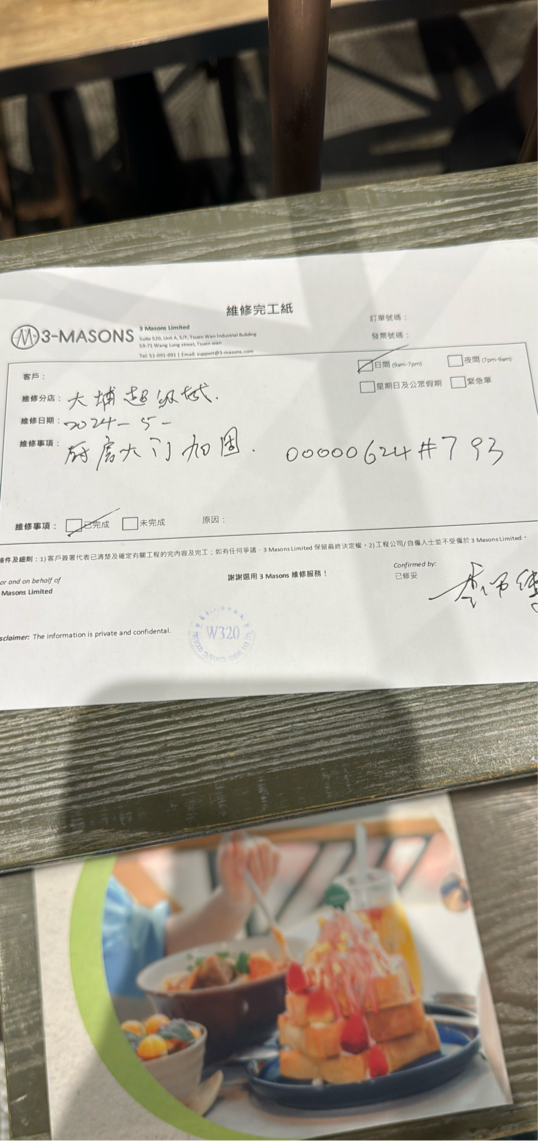 維修完工紙
訂單號碼：
發票號碼：
3-MASONS
3 Masons Limited
Suite 520, Unit A, 5/F, Tsuen Wan Industrial Building
59-71 Wang Lung street, Tsuen wan
Tel: 51-091-091 | Email: support@3-masons.com
客戶：
日間 (9am-7pm)
夜間 (7pm-9am)
維修分店：大埔超級城.
星期日及公眾假期
緊急單
維修日期：2024-5-
維修事項：廚房大门加固. 00000624#793
維修事項：
已完成
未完成
原因：
條件及細則：1) 客戶簽署代表已清楚及確定有關工程的完內容及完工；如有任何爭議，3 Masons Limited 保留最終決定權，2) 工程公司/自僱人士並不受僱於 3 Masons Limited。
or and on behalf of
Masons Limited
謝謝選用 3 Masons 維修服務！
Confirmed by:
已修妥
sclaimer: The information is private and confidental.
W320